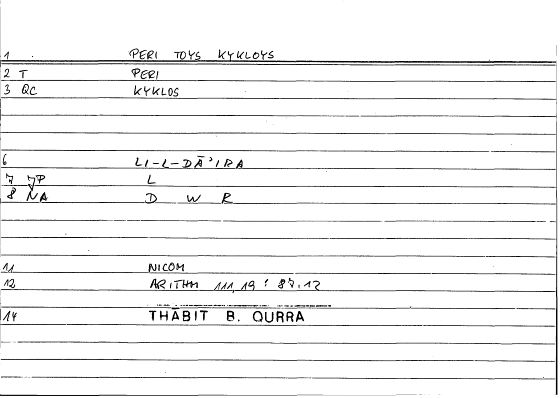 1 PERI TOYS KYKLOYS
2 T PERI
3 QC KYKLOS
6 LI-L-DĀ'IRA
7 JP L
8 NA D W R
11 NICOM
12 ARITHM 111,19 : 87,12
14 THABIT B. QURRA